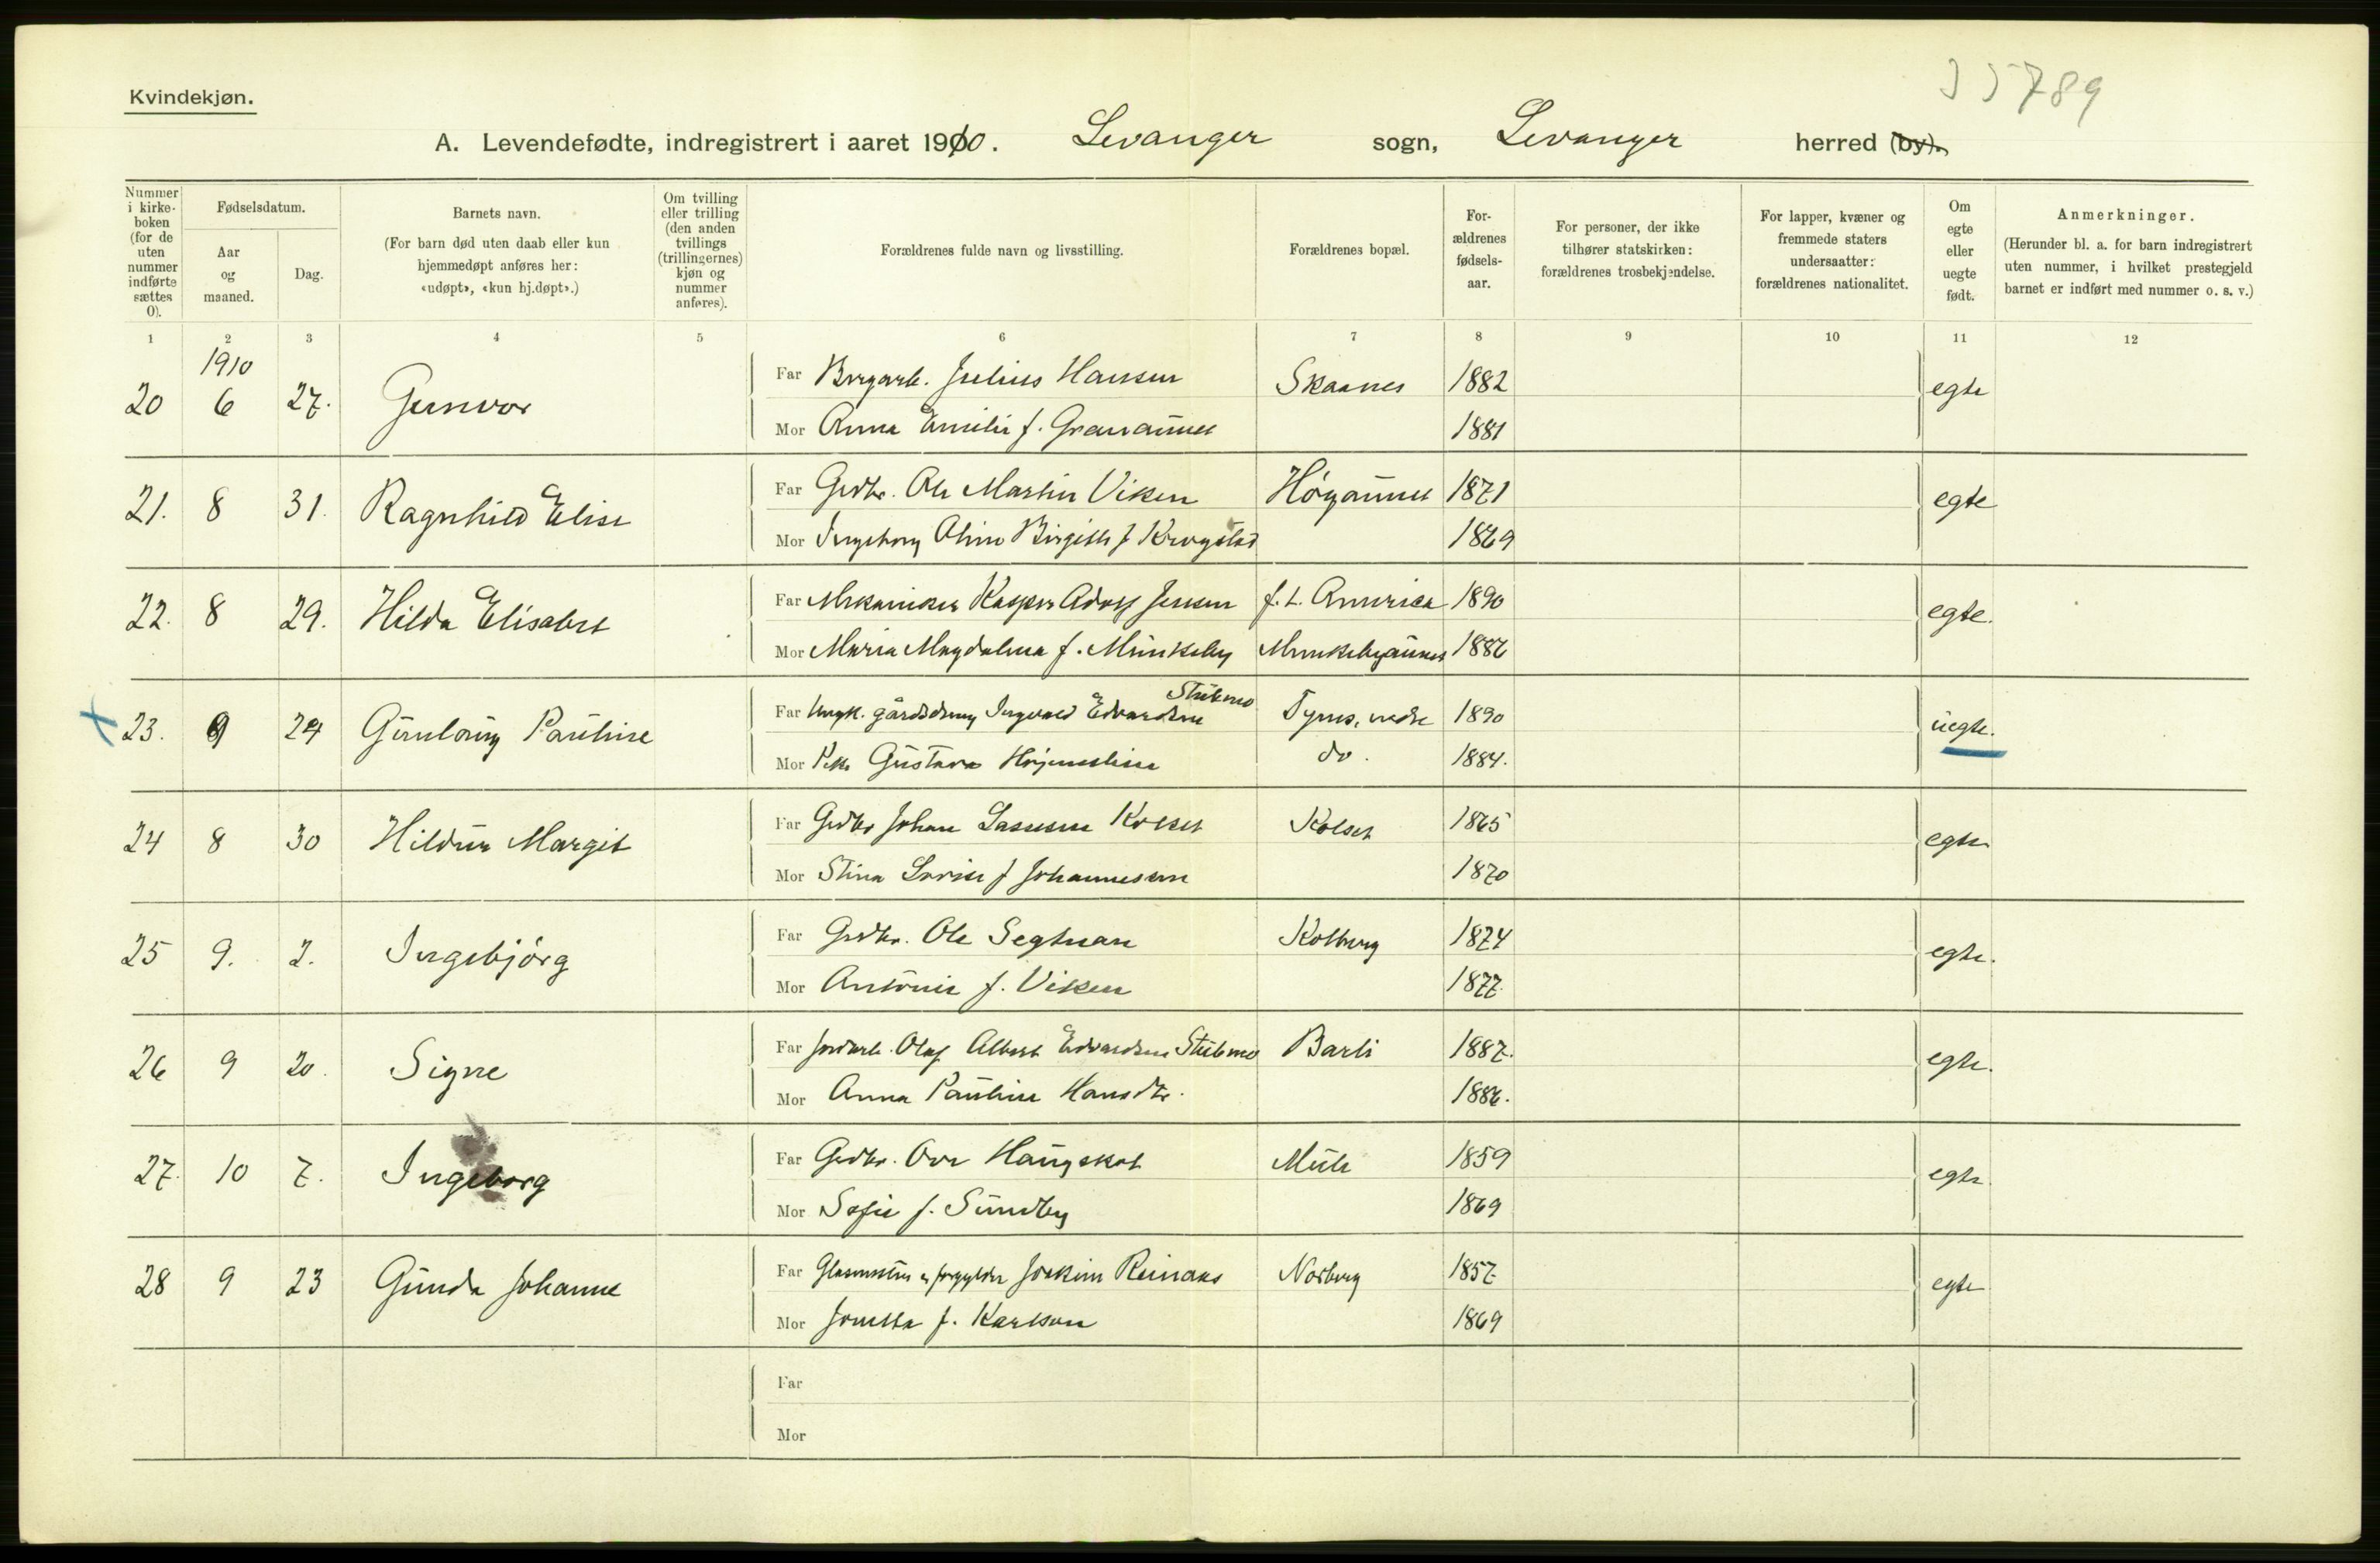 35789
Kvindekjøn.
A. Levendefødte, indregistrert i aaret 1910. Levanger sogn, Levanger herred (by).
Nummer i kirkeboken (for de uten nummer indførte sættes 0).
Fødselsdatum.
Aar og maaned.
Dag.
Barnets navn.
(For barn død uten daab eller kun hjemmedøpt anføres her: «udøpt», «kun hj.døpt».)
Om tvilling eller trilling (den anden tvillings (trillingernes) kjøn og nummer anføres).
Forældrenes fulde navn og livsstilling.
Forældrenes bopæl.
Forældrenes fødselsaar.
For personer, der ikke tilhører statskirken: forældrenes trosbekjendelse.
For lapper, kvæner og fremmede staters undersaatter: forældrenes nationalitet.
Om egte eller uegte født.
Anmerkninger.
(Herunder bl. a. for barn indregistrert uten nummer, i hvilket prestegjeld barnet er indført med nummer o. s. v.)
1 2 3 4 5 6 7 8 9 10 11 12
1910
20 6 27. Gunvor Far Julius Hansen Skaanes 1882 egte
Mor Anna Emilie f. 1881
21. 8 31. Ragnhild Elise Far Grdbr. Ole Martin Viken 1871 egte
Mor Ingeborg Oline f 1869
22. 8 29. Hilda Elisabet Far Mekaniker Kasper Adolf Jensen f. t. America 1890 egte.
Mor Maria Magdalena f. Munkeby Munkebyaunet 1886
23. 9 24 Gunlaug Pauline Far Ungk. gårdsdreng Ingvald Edvardsen Stubmo 1890 uegte.
Mor Pike Gustava do. 1884.
24 8 30 Hildur Margit Far Grdbr Johan Lassesen Kolset Kolset 1865 egte
Mor Stina Lovise f Johannessen 1870
25 9. 2. Ingebjörg Far Grdbr. Ole Segtnan Kolberg 1874 egte.
Mor Antonie f. Viken 1877
26 9 20. Signe Far Jordarb. Olaf Albert Edvardsen Stubmo Barli 1887. egte.
Mor Anna Pauline Hansdtr. 1886.
27. 10 7. Ingeborg Far Grdbr. Ove Haugskot Mule 1859 egte
Mor Sofie f. Sundby 1869
28 9 23 Gunda Johanne Far Glasmester & forgylder Joakim Reinaas Norberg 1857 egte
Mor Jonetta f. Karlson 1869
Far
Mor